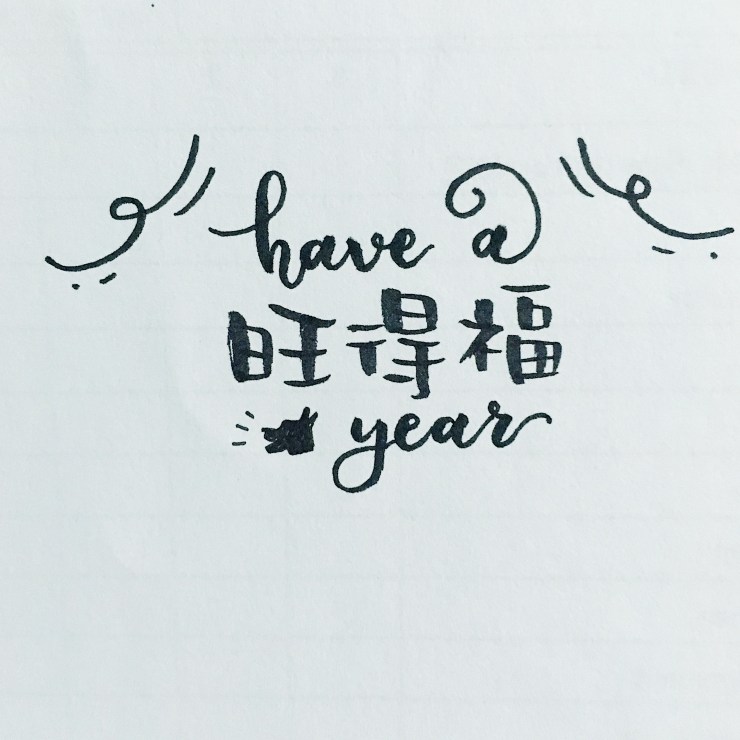 have a
旺得福
year